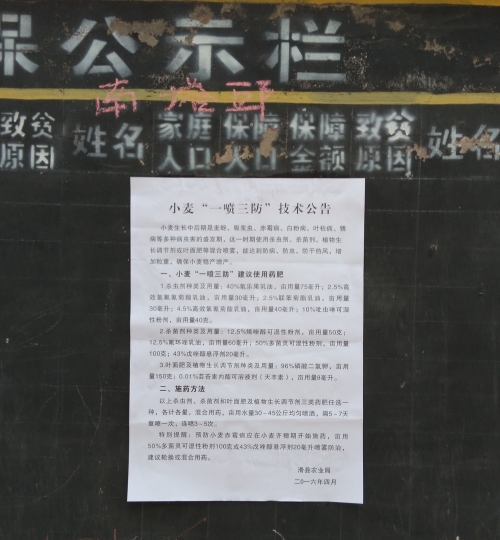 保公示栏
南 塔 研
致贫原因 姓名 家庭人口 保障人口 保障金额 致贫原因 姓名
小麦“一喷三防”技术公告
小麦生长中后期是麦蚜、吸浆虫、赤霉病、白粉病、叶枯病、锈
病等多种病虫害的盛发期，这一时期使用杀虫剂、杀菌剂、植物生
长调节剂或叶面肥等混合喷雾，能达到防病、防虫、防干热风，增
加粒重，确保小麦稳产增产。
一、小麦“一喷三防”建议使用药肥
1.杀虫剂种类及用量：40%氧乐果乳油，亩用量75毫升；2.5%高
效氯氟氰菊酯乳油，亩用量30毫升；2.5%联苯菊酯乳油，亩用量
30毫升；4.5%高效氯氰菊酯乳油，亩用量40毫升；10%吡虫啉可湿
性粉剂，亩用量40克。
2.杀菌剂种类及用量：12.5%烯唑醇可湿性粉剂，亩用量50克；
12.5%氟环唑乳油，亩用量60毫升；50%多菌灵可湿性粉剂，亩用量
100克；43%戊唑醇悬浮剂20毫升。
3.叶面肥及植物生长调节剂种类及用量：96%磷酸二氢钾，亩用
量150克；0.01%芸苔素内酯可溶液剂（天丰素），亩用量9毫升。
二、施药方法
以上杀虫剂、杀菌剂和叶面肥及植物生长调节剂三类药肥任选一
种，各计各量，混合用药，亩用水量30-45公斤均匀喷洒，隔5-7天
重喷一次，连喷3~5次。
特别提醒：预防小麦赤霉病应在小麦齐穗期开始施药，亩用
50%多菌灵可湿性粉剂100克或43%戊唑醇悬浮剂20毫升喷雾防治，
建议轮换或混合用药。
滑县农业局
二〇一六年四月